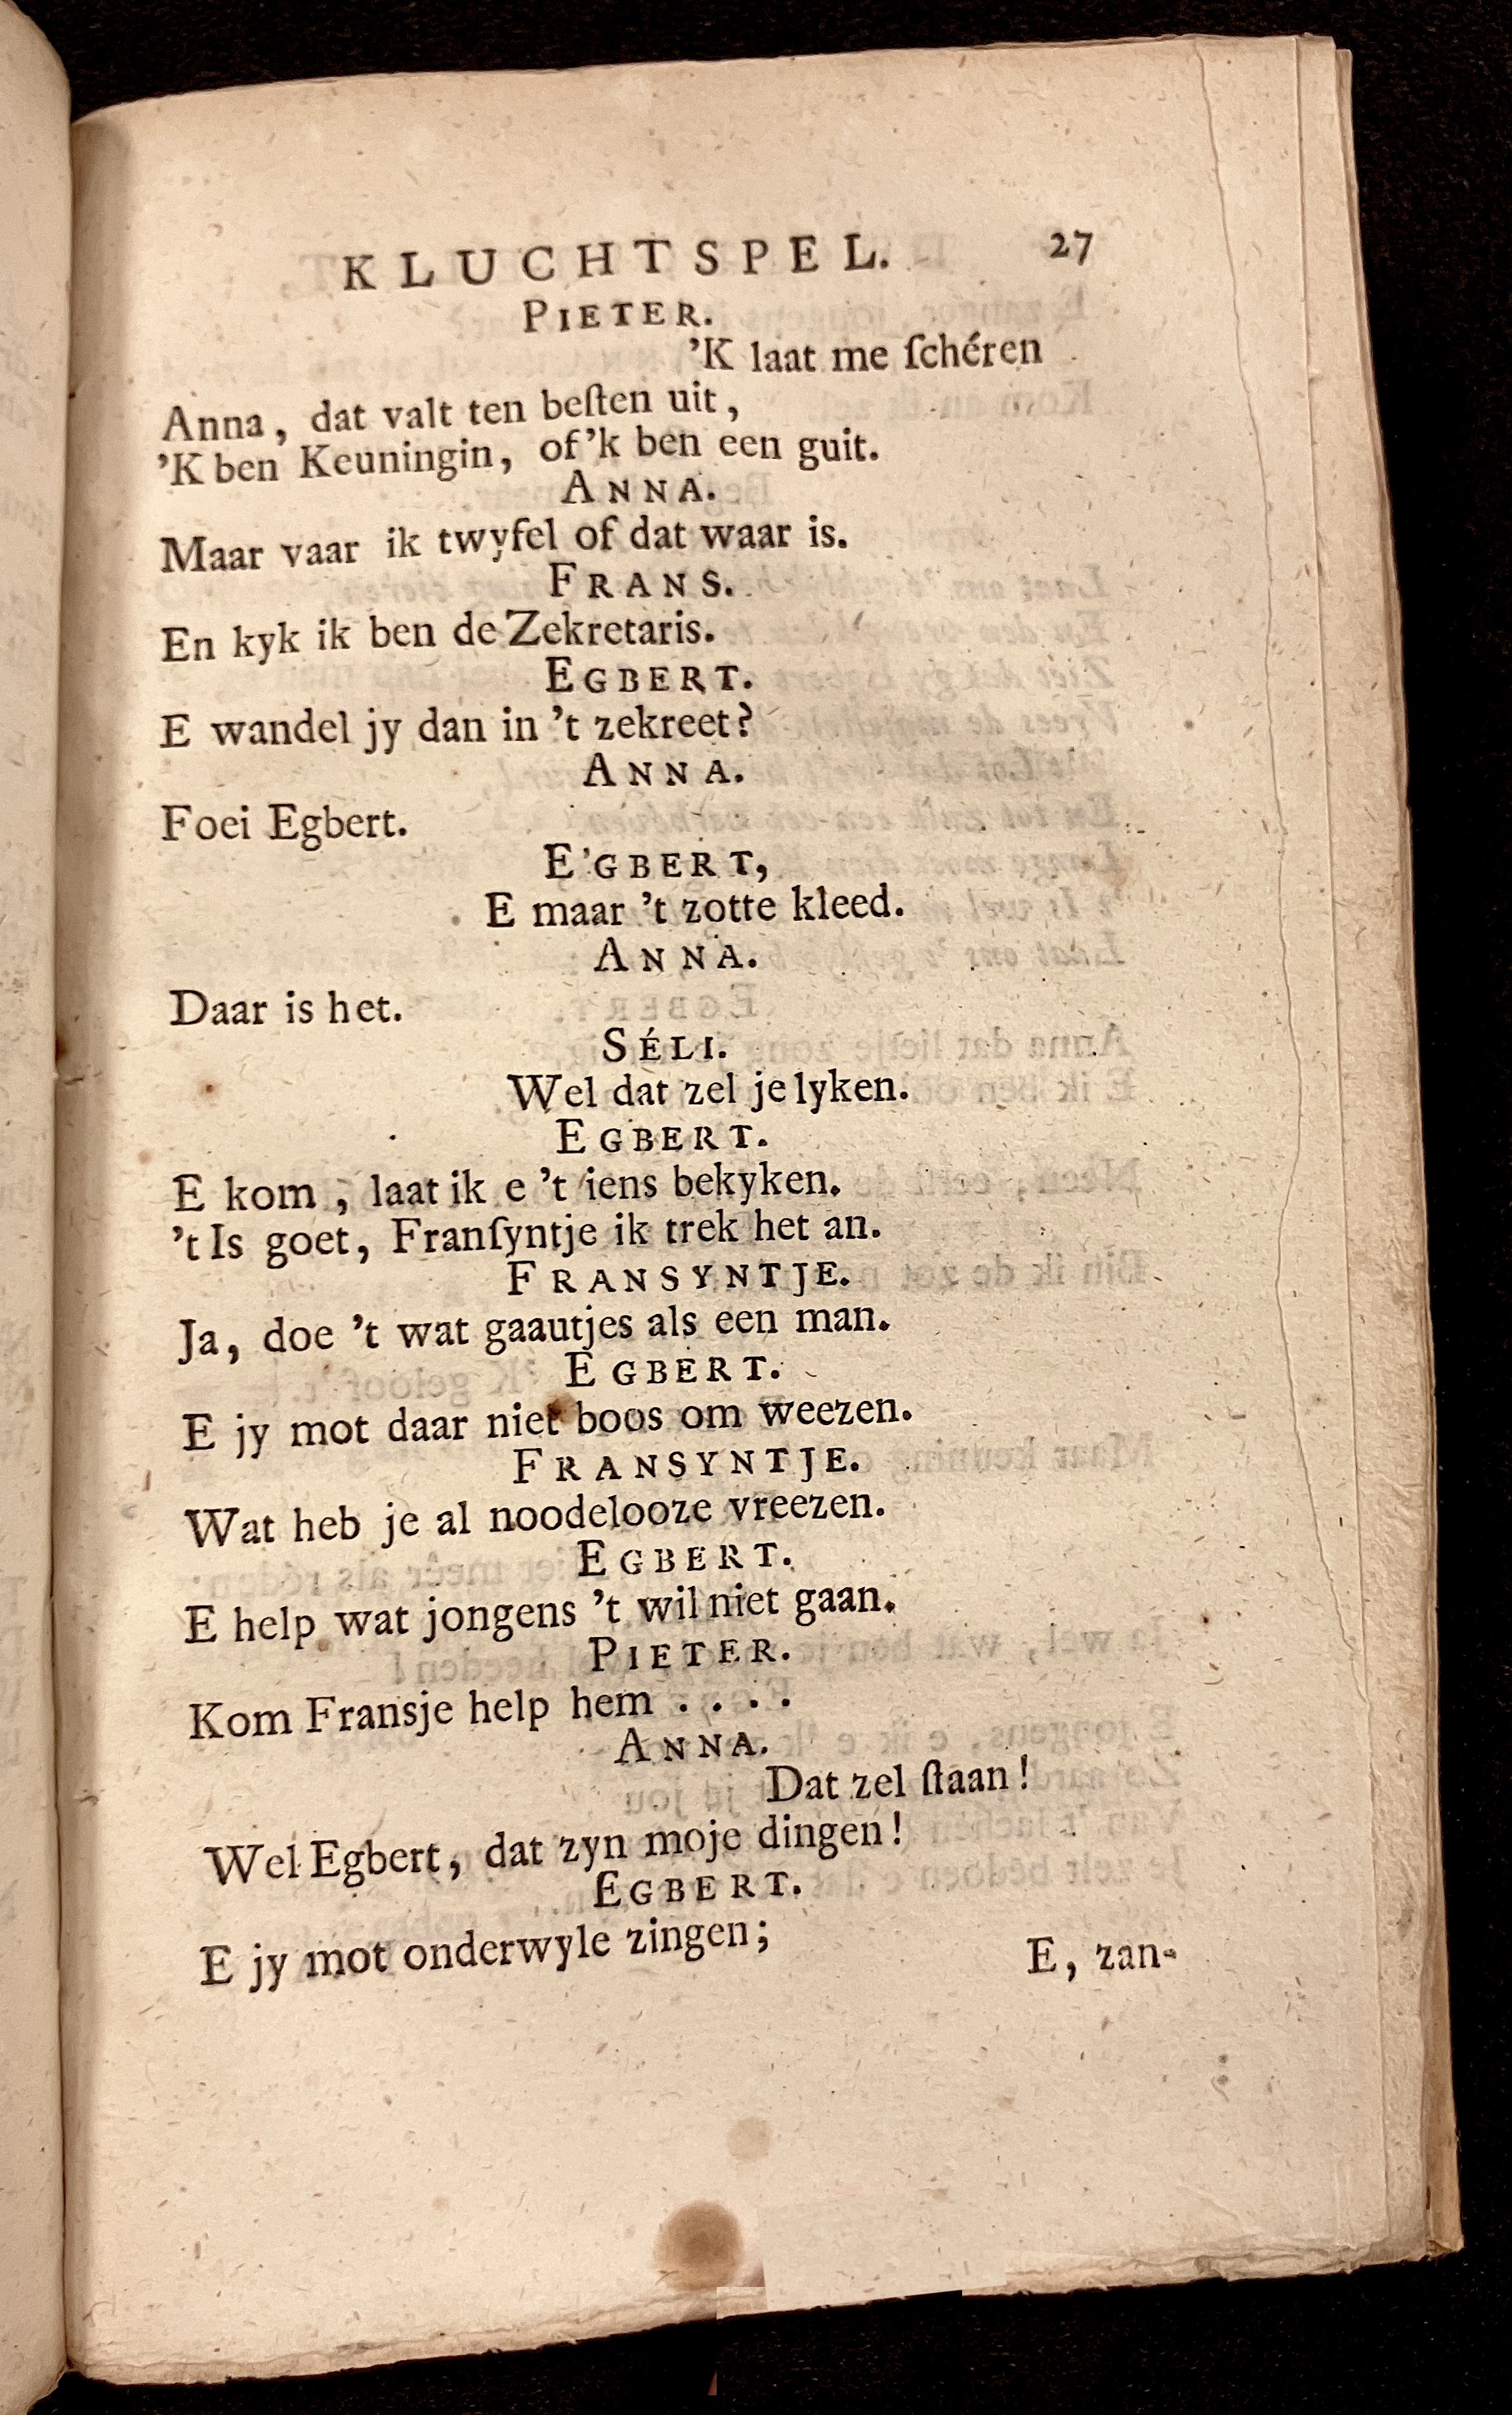 KLUCHTSPEL. 27
PIETER.
’K laat me ſchéren
Anna, dat valt ten beſten uit,
’K ben Keuningin, of ’k ben een guit.
ANNA.
Maar vaar ik twyfel of dat waar is.
FRANS.
En kyk ik ben de Zekretaris.
EGBERT.
E wandel jy dan in ’t zekreet?
ANNA.
Foei Egbert.
EGBERT,
E maar ’t zotte kleed.
ANNA.
Daar is het.
SÉLI.
Wel dat zel je lyken.
EGBERT.
E kom, laat ik e ’t iens bekyken.
’t Is goet, Franſyntje ik trek het an.
FRANSYNTJE.
Ja, doe ’t wat gaautjes als een man.
EGBERT.
E jy mot daar niet boos om weezen.
FRANSYNTJE.
Wat heb je al noodelooze vreezen.
EGBERT.
E help wat jongens ’t wil niet gaan.
PIETER.
Kom Fransje help hem . . . .
ANNA.
Dat zel ſtaan!
Wel Egbert, dat zyn moje dingen!
EGBERT.
E jy mot onderwyle zingen;
E, zan-